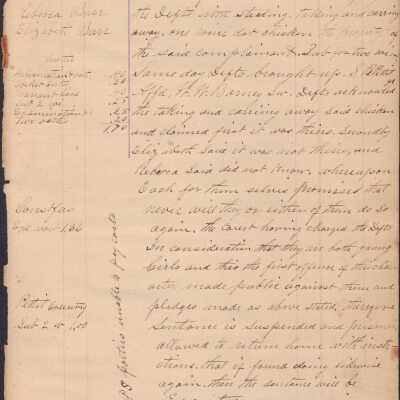 Elizabeth
the Defts with stealing, taking and carrying
away, one hours dot chicken, the property of
the said complainant. Sub wa tivo
Same day Defts. brought up.
Affd. H. W. Barney Sw. Defts acknowled
the taking and carrying away said chicken
and claimed first it was theirs. Secondly
Elizabeth said it was not theirs, and
Rebecca said did not know, whereupon
Each for them selves promises that
never will they or either of them do so
again, the Court having charged the Defts
In consideration that they are both young
Girls and this the first offence of this char
acter made public against them and
pledges made as above stated, therefore
Sentance is suspended and prisoners
allowed to return home with instr
ctions, that if found doing likewise
again, then the sentance will be
Costs
Sub 2 w
Two oath
Constfax
1.56
Pettit Country
Sub 2 w 1.00
PS parties unable to pay costs